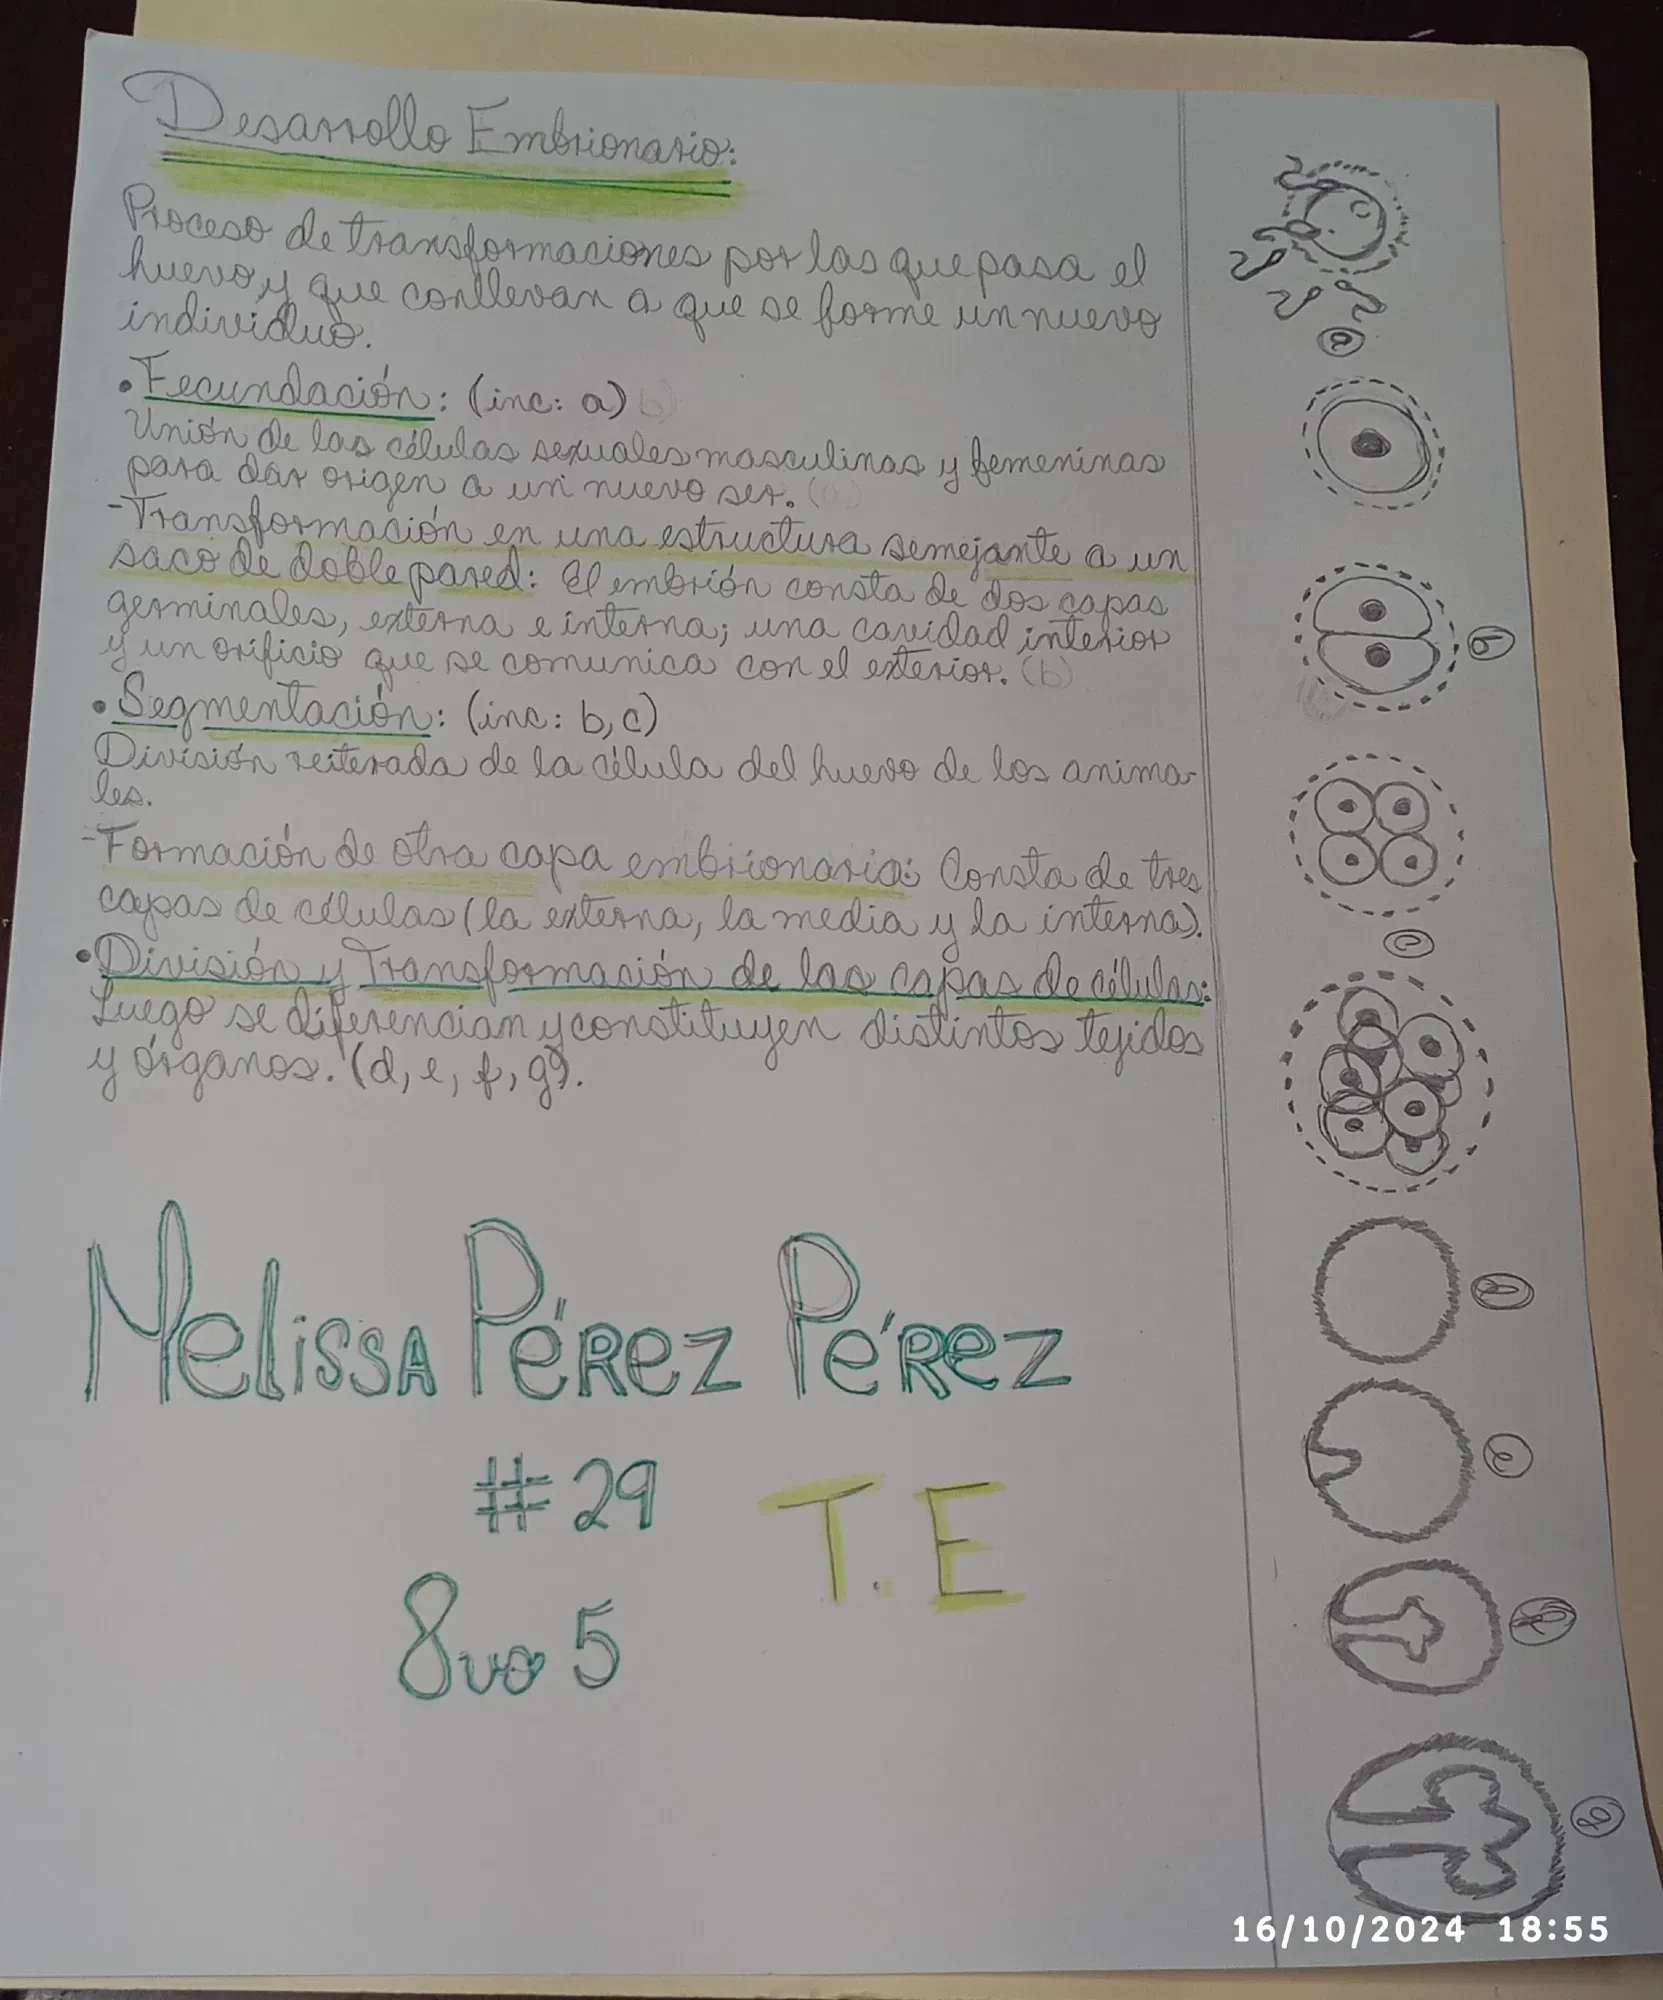 Desarrollo Embrionario:
Proceso de transformaciones por las que pasa el
huevo, y que conllevan a que se forme un nuevo
individuo.
• Fecundación: (inc: a) b)
Unión de las células sexuales masculinas y femeninas
para dar origen a un nuevo ser. (a)
-Transformación en una estructura semejante a un
saco de doble pared: El embrión consta de dos capas
germinales, externa e interna; una cavidad interior
y un orificio que se comunica con el exterior. (b)
• Segmentación: (inc: b, c)
División reiterada de la célula del huevo de los anima-
les.
-Formación de otra capa embrionaria: Consta de tres
capas de células (la externa, la media y la interna).
• División y Transformación de las capas de células:
Luego se diferencian y constituyen distintos tejidos
y órganos. (d, e, f, g).
Melissa Pérez Pérez
#29
T.E
8vo 5
a
b
c
d
e
f
g
16/10/2024 18:55